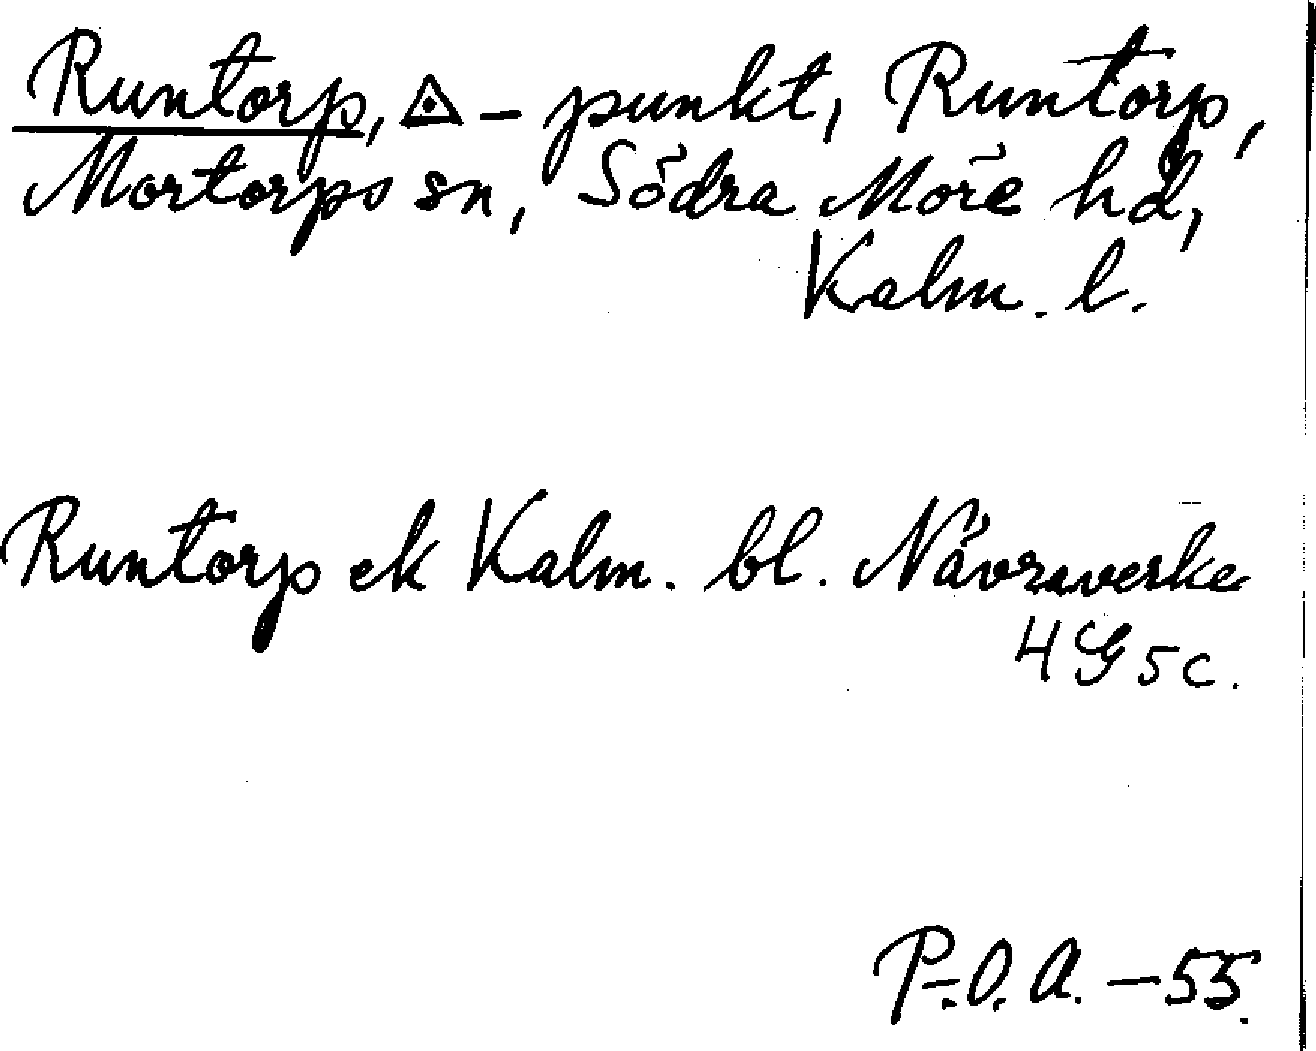 Runtorp, ◬ - punkt, Runtorp,
Mortorps sn, Södra Möre hd,
Kalm. l.
Runtorp ek Kalm. bl. Nävraverke
4G5c.
P.-O. A. - 55.